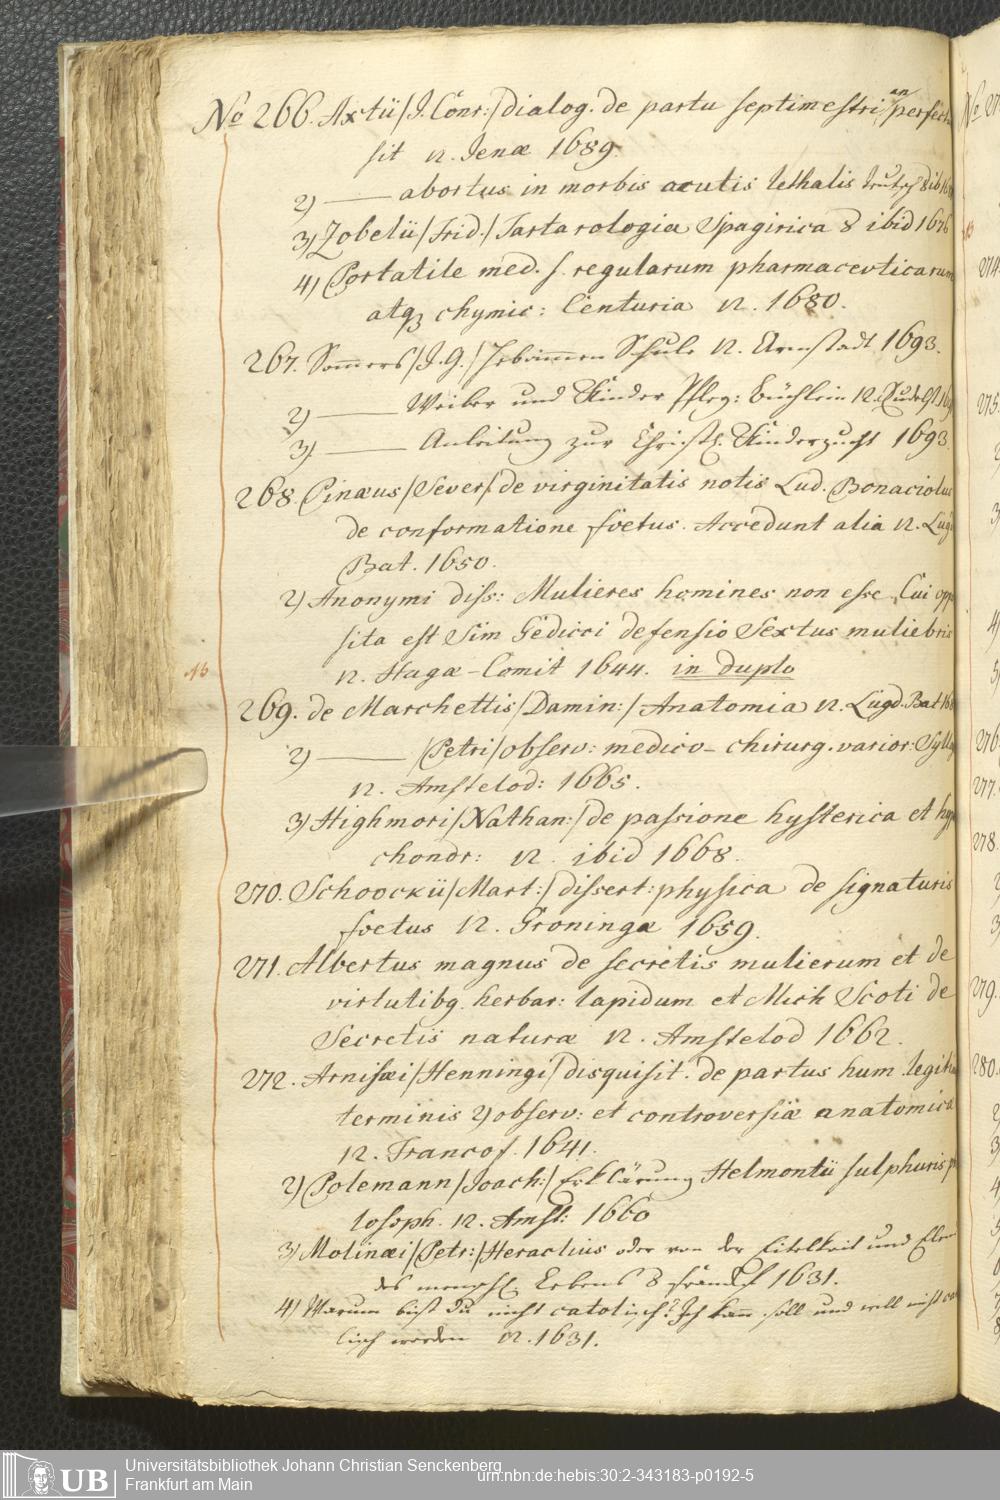 No 266. Axtii /J. Conr:/ dialog. de partu septimestri, an perfect
sit 12. Jenæ 1689.
2) —— abortus in morbis acutis lethalis 8 ibid
3) Zobelii /Frid./ Tartarologia Spagirica 8 ibid 1676
4) Portatile med. s. regularum pharmacevticarum
atq chymic: Centuria 12. 1680.
267. Somers /J. G./ Hebammen Schule 12. Arnstadt 1693.
2) —— Weiber und Kinder Pfleg: büchlein 12. Rudolst
3) —— Anleitung zur Christl. Kinderzucht 1693.
268. Pinæus /Sever/ de virginitatis notis Lud. Bonaciolus
de conformatione foetus. Accedunt alia 12. Lugd
Bat. 1650.
2) Anonymi diss: Mulieres homines non esse, Cui oppo
sita est Sim Gedicci defensio Sextus muliebris
12. Hagæ-Comit 1644. in duplo
269. de Marchettis /Damin:/ Anatomia 12. Lugd. Bat
2) —— /Petri/ observ: medico-chirurg. varior: Syllo
12. Amstelod: 1665.
3) Highmori /Nathan:/ de passione hysterica et hyp
chondr: 12. ibid 1668.
270. Schoockii /Mart:/ dissert: physica de signaturis
foetus 12. Groningæ 1659.
271. Albertus magnus de secretis mulierum et de
virtutibq herbar: lapidum et Mich Scoti de
Secretis naturæ 12. Amstelod 1662.
272. Arnisæi /Henningi/ disquisit. de partus hum. legiti
terminis 2) observ: et controversiæ anatomica
12. Francof. 1641.
2) Polemann /Joach:/ Erklärung Helmontii sulphuris p
losoph. 12. Amst: 1660
3) Molinæi /Petr:/ Heraclius oder von der Eitelkeit und Elen
des menschl. Lebens 8 1631.
4) Warum bist du nicht catolisch? Ich kann soll und will nicht ca
lisch werden 12. 1631.
No 27
274
275.
276
277.
278.
279.
280.
UB
Universitätsbibliothek Johann Christian Senckenberg
Frankfurt am Main
urn:nbn:de:hebis:30:2-343183-p0192-5